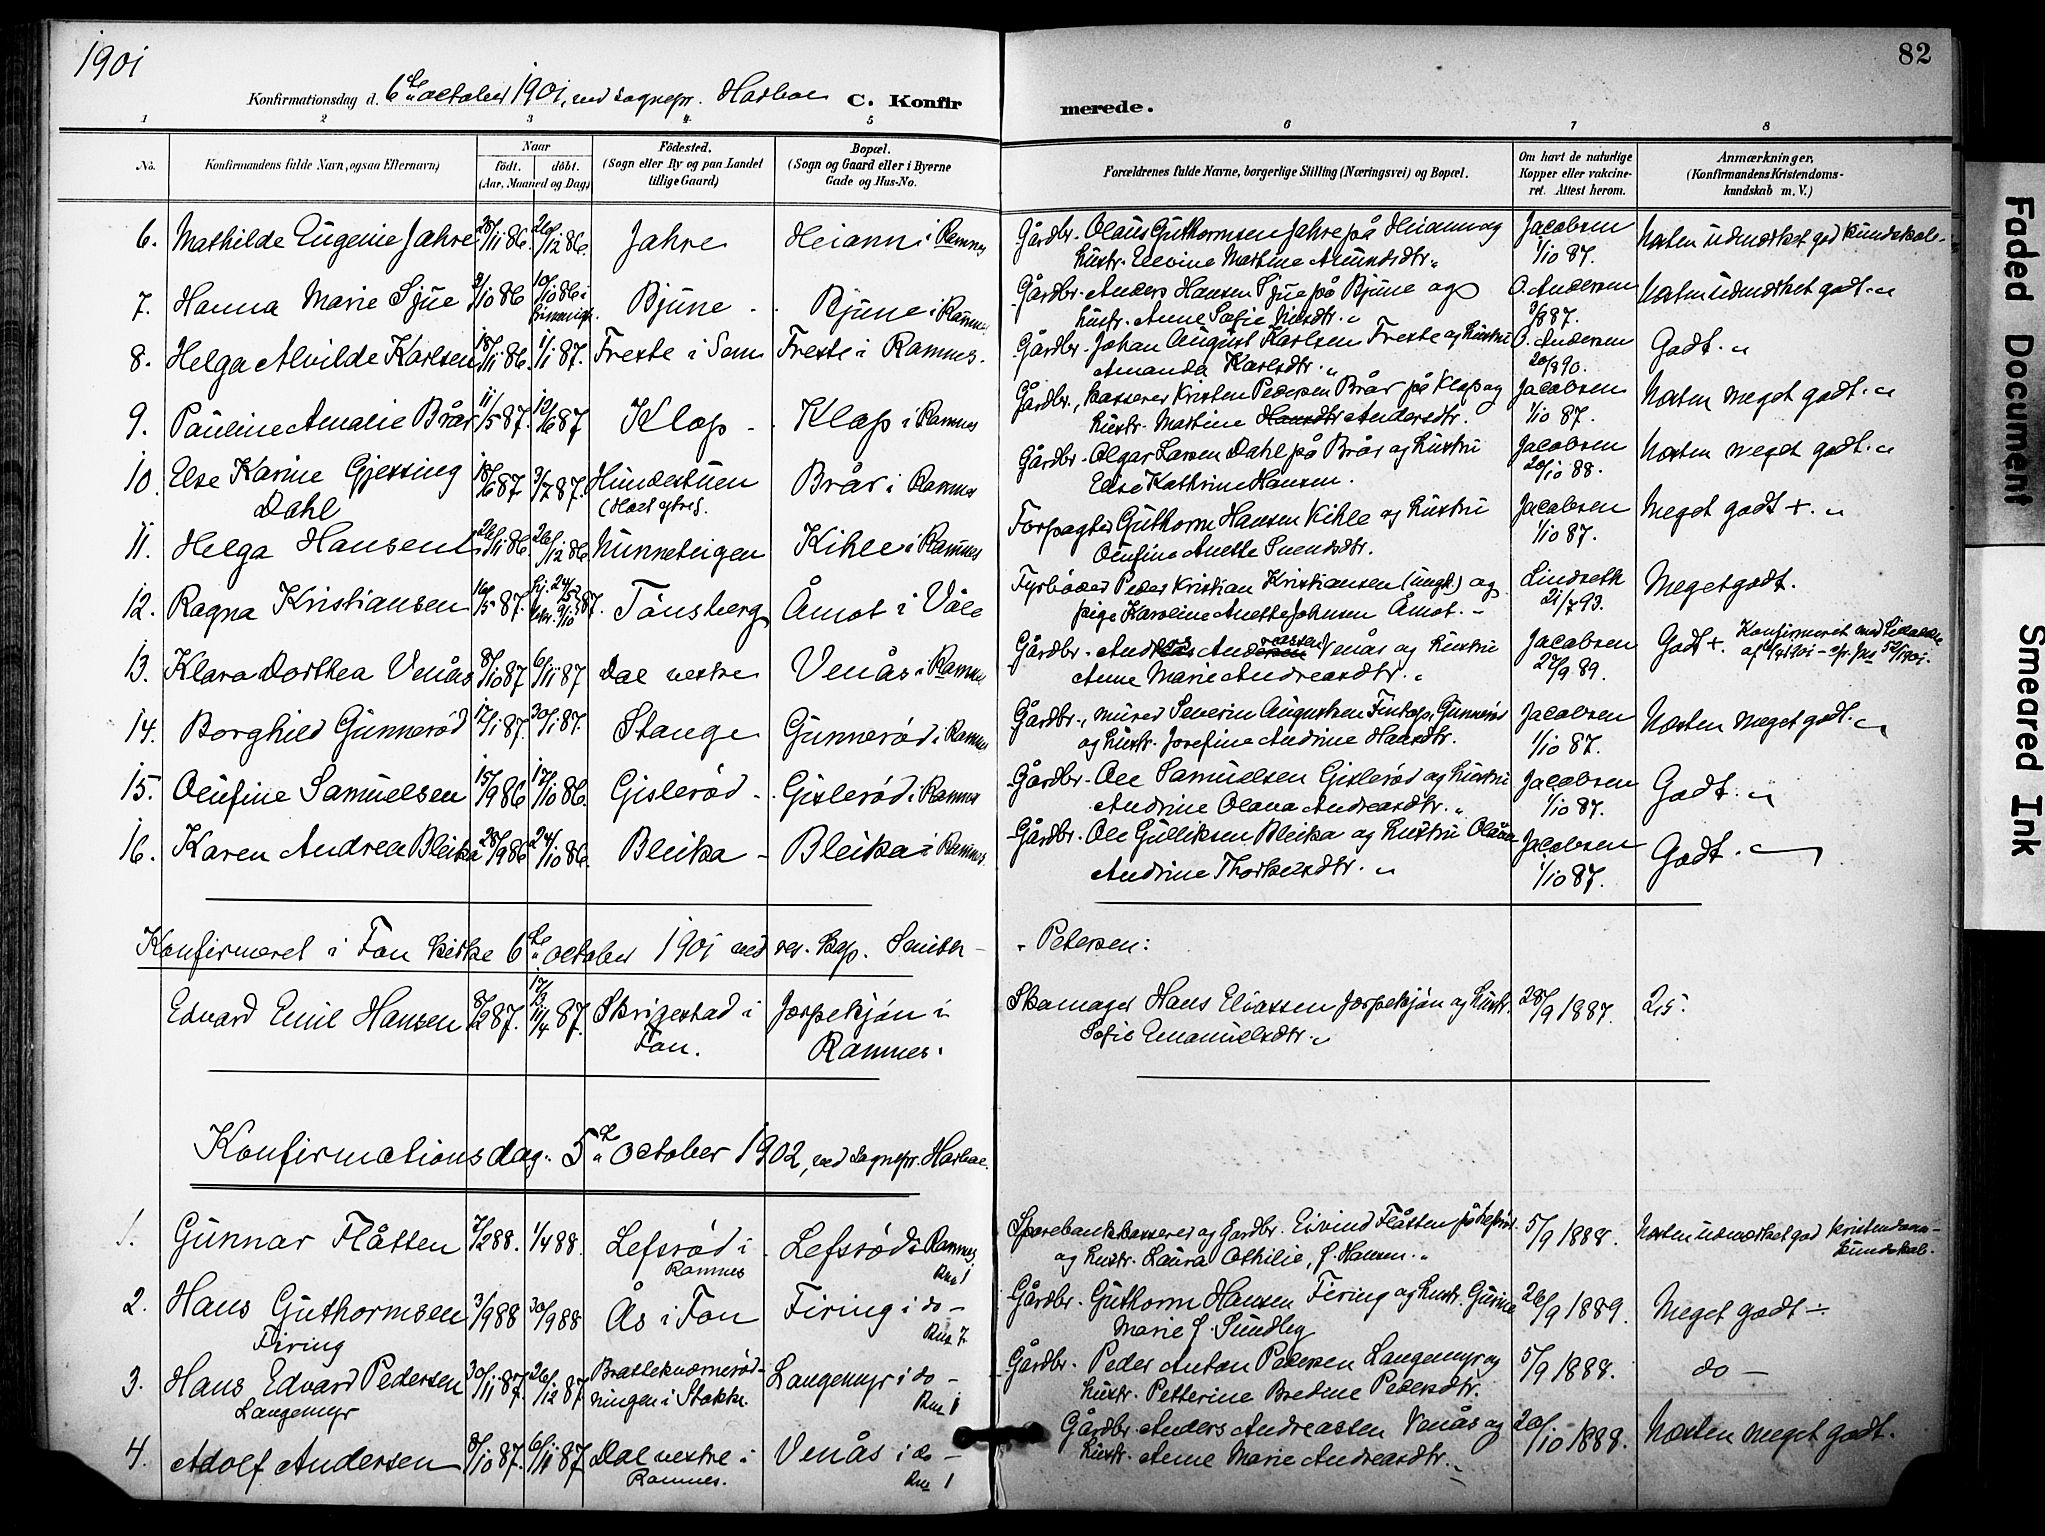 1901
82
Konfirmationsdag d. 6te october 1901, ved sognepr. Harboe C. Konfirmerede.
1 2 3 4 5 6 7 8
No.
Konfirmandens fulde Navn, ogsaa Efternavn)
Naar
født. døbt.
(Aar, Maaned og Dag)
Fødested.
(Sogn eller By og paa Landet
tillige Gaard)
Bopæl.
(Sogn og Gaard eller i Byerne
Gade og Hus-No.
Forældrenes fulde Navne, borgerlige Stilling (Næringsvei) og Bopæl.
Om havt de naturlige
Kopper eller vakcine-
ret. Attest herom.
Anmærkninger,
(Konfirmandens Kristendoms-
kundskab m. V.)
6. Mathilde Eugenie Jahre 28/11 86. 26/12 86. Jahre Heian i Ramnes Gårdbr. Olaus Guthormsen Jahre på Heian og Jacobsen Næsten udmærket god kundskab.
hustr. Elevine Martine Amundsdtr. 1/10 87.
7. Hanna Marie Sjue 3/10 86 10/10 86 i Bjune Bjune i Ramnes Gårdbr. Anders Hansen Sjue på Bjune og O. Andersen Næsten udmærket godt.
hustr. Anne Sofie Nilsdtr. 3/8 87.
8. Helga Alvilde Karlsen 18/11 86. 1/1 87. Freste i Sem Freste i Ramnes. Gårdbr. Johan August Karlsen Freste og hustru O. Andersen Godt.
Amanda Karlsdtr. 20/8 90.
9. Pauline Amalie Brår 11/5 87. 12/6 87 Klop Klop i Ramnes Gårdbr., kasserer Kristen Pedersen Brår på Klop og Jacobsen Næsten meget godt.
hustr. Martine Hansdtr Andersdtr. 1/10 87.
10. Else Karine Gjessing 18/6 87 3/7 87. Hundestuen Brår i Ramnes Gårdbr. Olgar Larsen Dahl på Brår og hustru Jacobsen Næsten meget godt.
Dahl Else Kathrine Hansen. 20/10 88.
11. Helga Hansen 26/11 86. 26/12 86. Nunneteigen Kihle i Ramnes Forpagter Guthorm Hansen Kihle og hustru Jacobsen Meget godt +.
Olufine Anette Svendsdtr. 1/10 87.
12. Ragna Kristiansen 16/5 87. 87. Tönsberg Åmot i Våle Fyrböder Peder Kristian Kristiansen (ungk.) og Lindseth Meget godt.
pige Karoline Anette Johnsen Åmot. 21/7 93.
13. Klara Dorthea Venås 8/10 87 6/11 87 Dal vestre Venås i Ramnes Gårdbr. Anders Andreassen Venås og hustru Jacobsen Godt +. Konfirmeret med tilladelse
Anne Marie Andreasdtr. 27/9 89.
14. Borghild Gunnerød 17/1 87. 30/1 87. Stange Gunnerød i Ramnes Gårdbr., murer Severin Augustsen Gunnerød Jacobsen Næsten meget godt.
og hustr. Josefine Andrine Hansdtr. 1/10 87.
15. Olufine Samuelsen 15/9 86 17/10 86. Gislerød Gislerød i Ramnes Gårdbr. Ole Samuelsen Gislerød og hustru Jacobsen Godt.
Andrine Olava Andreasdtr. 1/10 87.
16. Karen Andrea Bleika 28/9 86 24/10 86. Bleika Bleika i Ramnes. Gårdbr. Ole Gulliksen Bleika og hustru Olava Jacobsen Godt.
Andrine Thorkelsdtr. 1/10 87.
Konfirmeret i Fon kirke 6te october 1901 ved res. kap. Smith-Petersen:
Edvard Emil Hansen 8/2 87. 87. Skrigestad i Jorpekjøn i Skomager Hans Eliassen Jorpekjøn og hustr. 28/9 1887. 2,5.
Fon. Ramnes. Sofie Emanuelsdtr.
Konfirmationsdag 5te october 1902, ved sognepr. Harboe.
1. Gunnar Flåtten 7/2 88. 1/4 88. Lefsrød i Lefsrød i Ramnes. Sparebankkasserer og gårdbr. Eivind Flåtten på Lefsrød 5/9 1888. Næsten udmærket god kristendoms-
Ramnes og hustr. Laura Othilie, f. Hansen. kundskab.
2. Hans Guthormsen 3/9 88 30/9 88 Ås i Fon Firing i do Gårdbr. Guthorm Hansen Firing og hustr. Gurine 26/9 1889. Meget godt ÷
Firing Marie f. Sundby
3. Hans Edvard Pedersen 30/11 87. 26/12 87 Langemyr i do Gårdbr. Peder Anton Pedersen Langemyr og 5/9 1888. do
Langemyr ningen i Stokke. hustr. Petterine Bredine Pedersdtr.
4. Adolf Andersen 8/10 87. 6/11 87 Dal vestre i Venås i do Gårdbr. Anders Andreassen Venås og 20/10 1888. Næsten meget godt.
Ramnes. hustr. Anne Marie Andreasdtr.
Faded Document
Smeared Ink